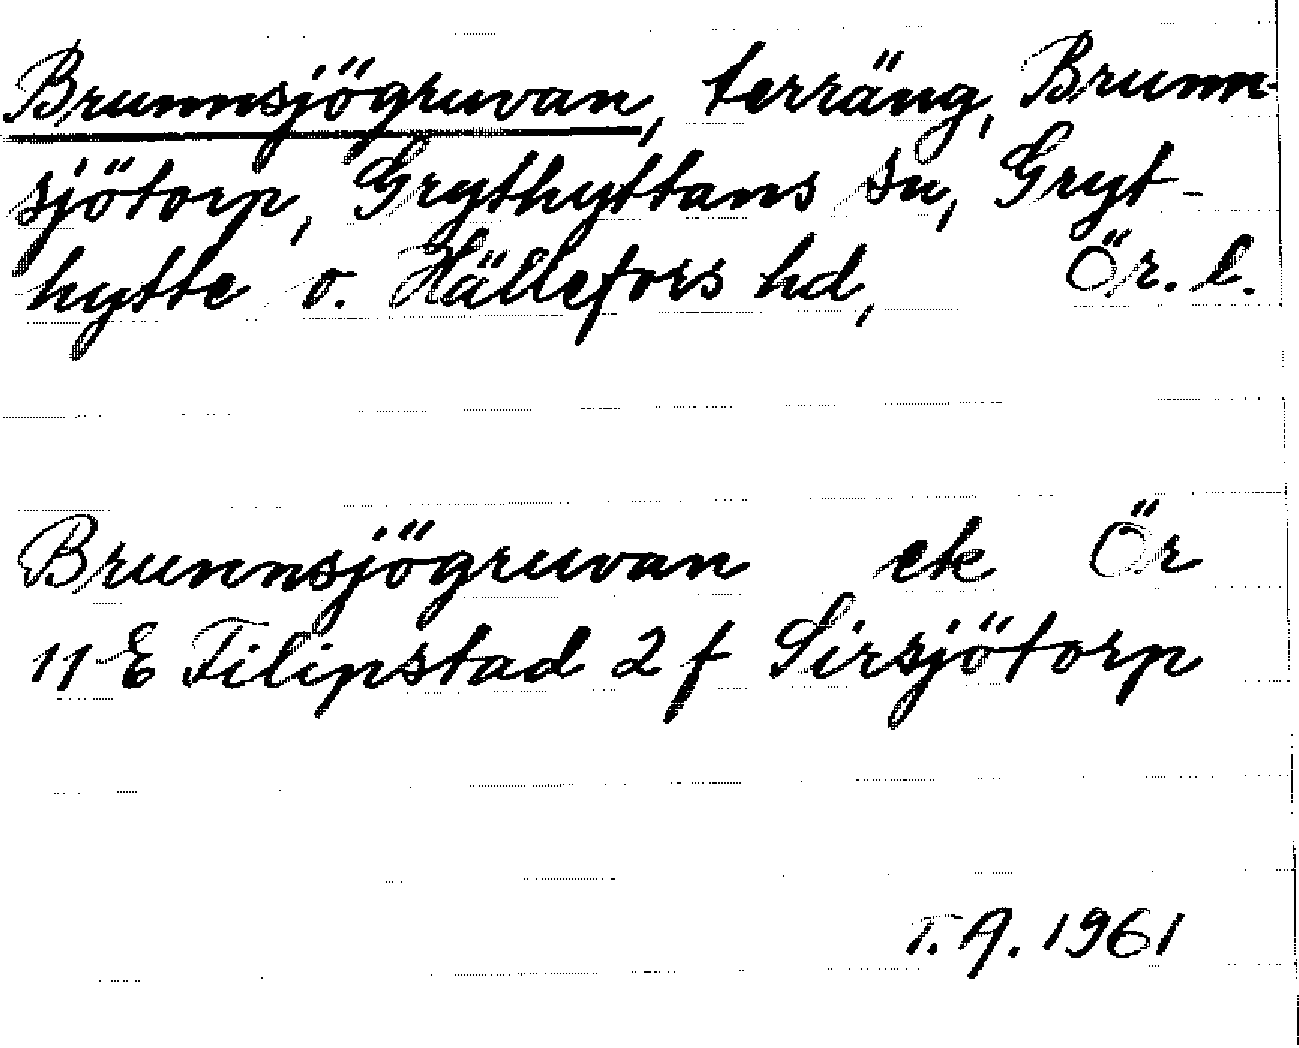 Brunnsjögruvan, terräng, Brunn-
sjötorp, Grythyttans sn, Gryt-
hytte o. Hällefors hd, Ör. l.
Brunnsjögruvan ek Ör
11 E Filipstad 2 f Sirsjötorp
T. A. 1961